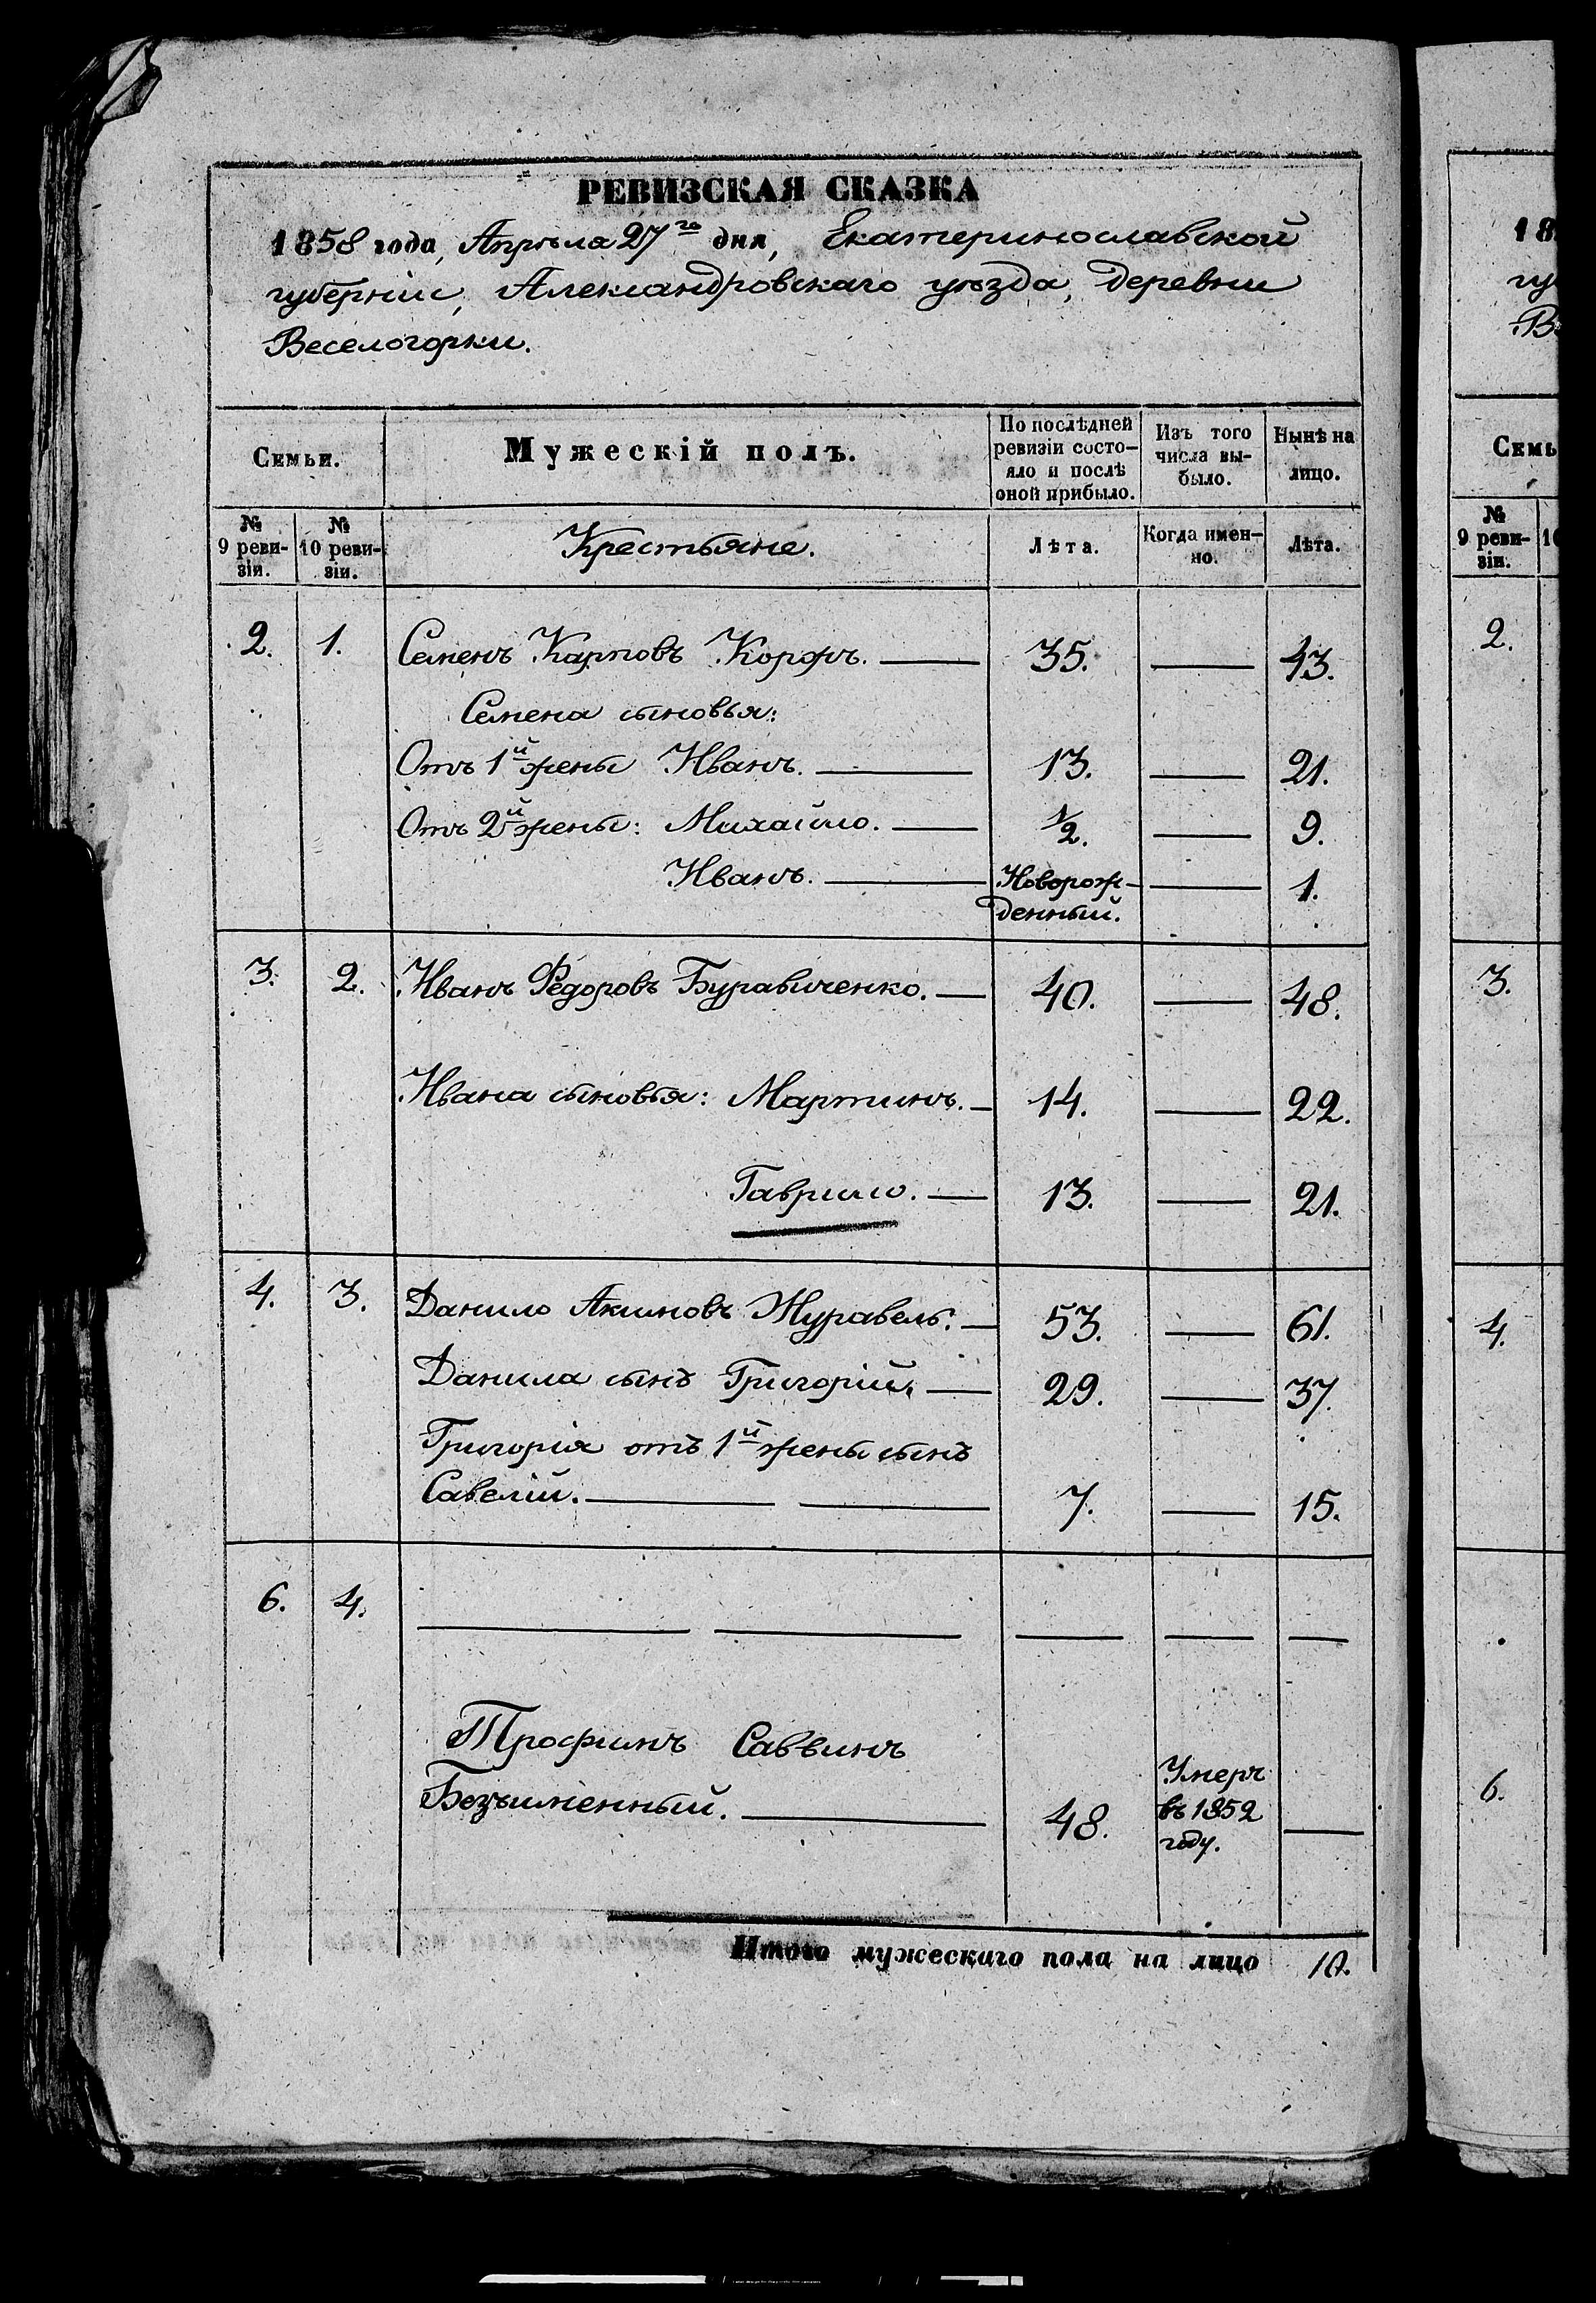 РЕВИЗСКАЯ СКАЗКА
1858 года, Апрѣля 27го дня, Екатеринославской
губерніи, Александровскаго уѣзда, деревни
Веселогорки.
Семьи.
Мужескій полъ.
По послѣдней
ревизіи состо-
яло и послѣ
оной прибыло.
Изъ того
числа вы-
было.
Нынѣ на
лицо.
№
9 реви-
зіи.
№
10 реви-
зіи.
Крестьяне.
Лѣта.
Когда имен-
но.
Лѣта.
2. 1. Семенъ Карповъ Коржъ. 35. 43.
Семена сыновья:
Отъ 1й жены Иванъ. 13. 21.
Отъ 2й жены: Михайло. 1/2. 9.
Иванъ. Новорож- 1.
денный.
3. 2. Иванъ Федоровъ Буравиченко. 40. 48.
Ивана сыновья: Мартинъ. 14. 22.
Гаврило. 13. 21.
4. 3. Данило Акимовъ Журавель. 53. 61.
Данила сынъ Григорій. 29. 37.
Григорія отъ 1й жены сынъ
Савелій. 7. 15.
6. 4.
Трофимъ Саввинъ
Безъименный. 48. Умеръ
въ 1852
году.
Итого мужескаго пола на лицо 10.
18
гу
В
Семь
№
9 реви-
зіи.
10
2.
3.
4.
6.